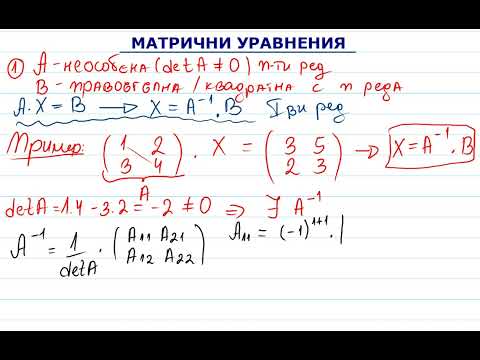 МАТРИЧНИ УРАВНЕНИЯ
① A - неособена (det A ≠ 0) n-ти ред
B - правоъгълна / квадратна с n реда
A . X = B → X = A⁻¹ . B I ви ред
Пример: (1 2 / 3 4) . X = (3 5 / 2 3) → X = A⁻¹ . B
A
det A = 1.4 - 3.2 = -2 ≠ 0 ⇒ ∃ A⁻¹
A⁻¹ = 1/det A . (A₁₁ A₂₁ / A₁₂ A₂₂) A₁₁ = (-1)¹⁺¹ . |